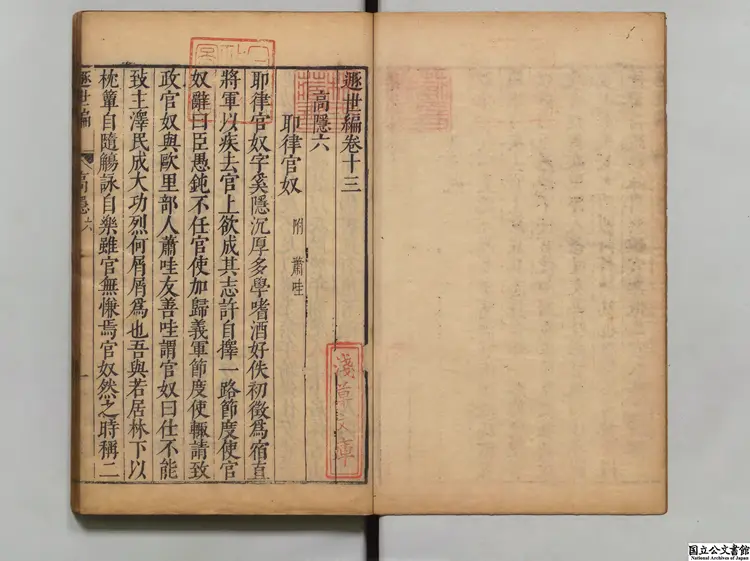 遯世編卷十三
高隱六
耶律官奴 附蕭哇
耶律官奴字奚隱沉厚多學嗜酒好佚初徵爲宿直
將軍以疾去官上欲成其志許自擇一路節度使官
奴辭曰臣愚鈍不任官使加歸義軍節度使輒請致
政官奴與歐里部人蕭哇友善哇謂官奴曰仕不能
致主澤民成大功烈何屑屑爲也吾與若居林下以
枕簟自隨觴詠自樂雖官無慊焉官奴然之時稱二
遯世編
高隱六
一
淺草文庫
国立公文書館
National Archives of Japan